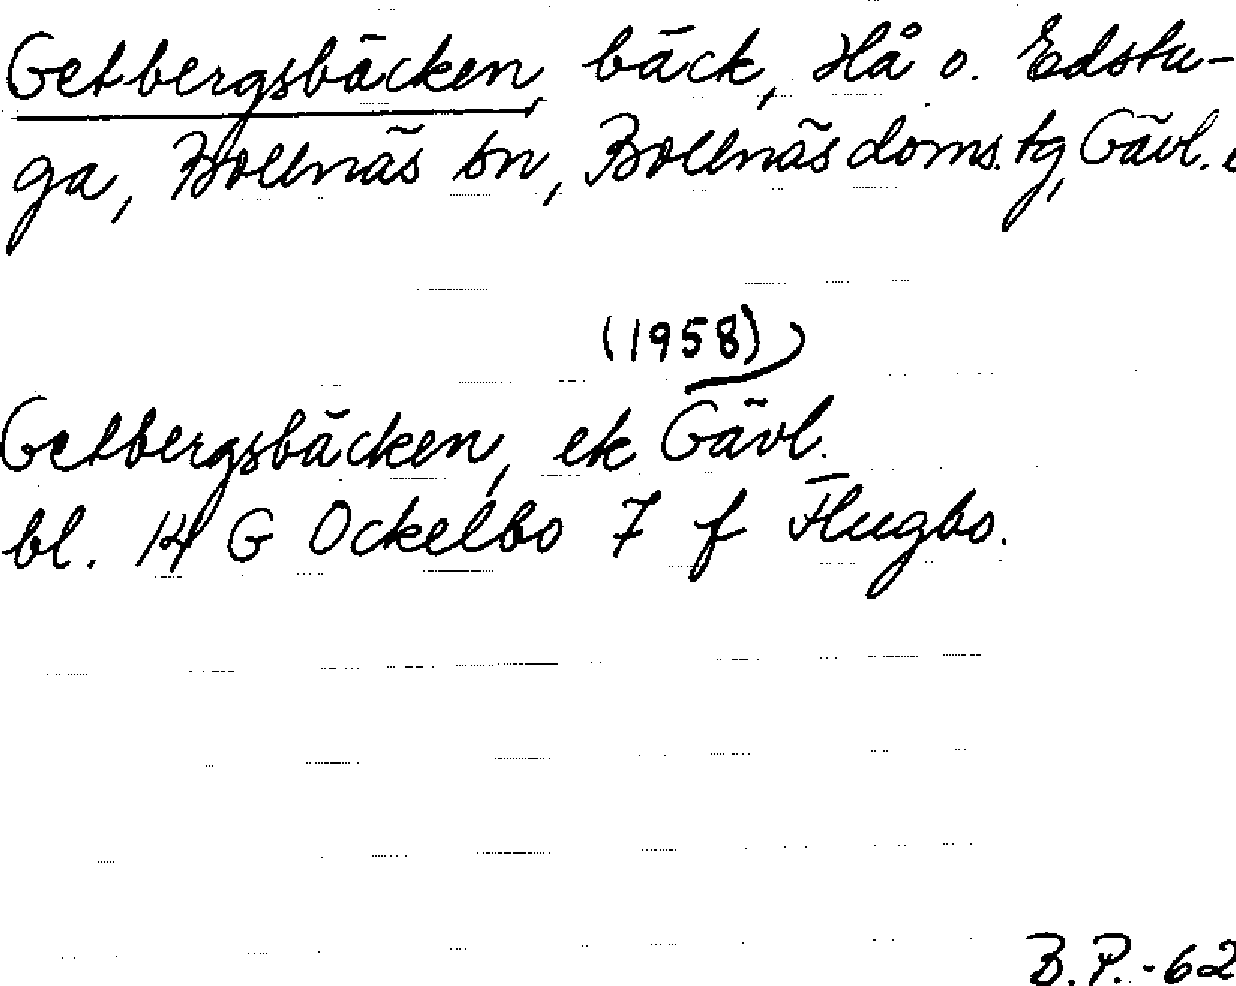 Getbergsbäcken, bäck, Hå o. Edstu-
ga, Bollnäs sn, Bollnäs doms. tg, Gävl.
(1958)
Getbergsbäcken, ek Gävl.
bl. 14 G Ockelbo 7 f Flugbo.
B.P.-62